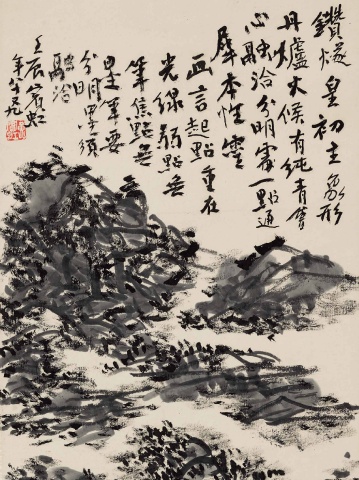 鑽燧皇初主象形
丹爐火候有純青會
心融洽分明處一點通
犀本性靈
画言起點重在
光線弱點無
筆焦點無
墨筆要
分明墨須
融洽
壬辰賓虹
年八十九